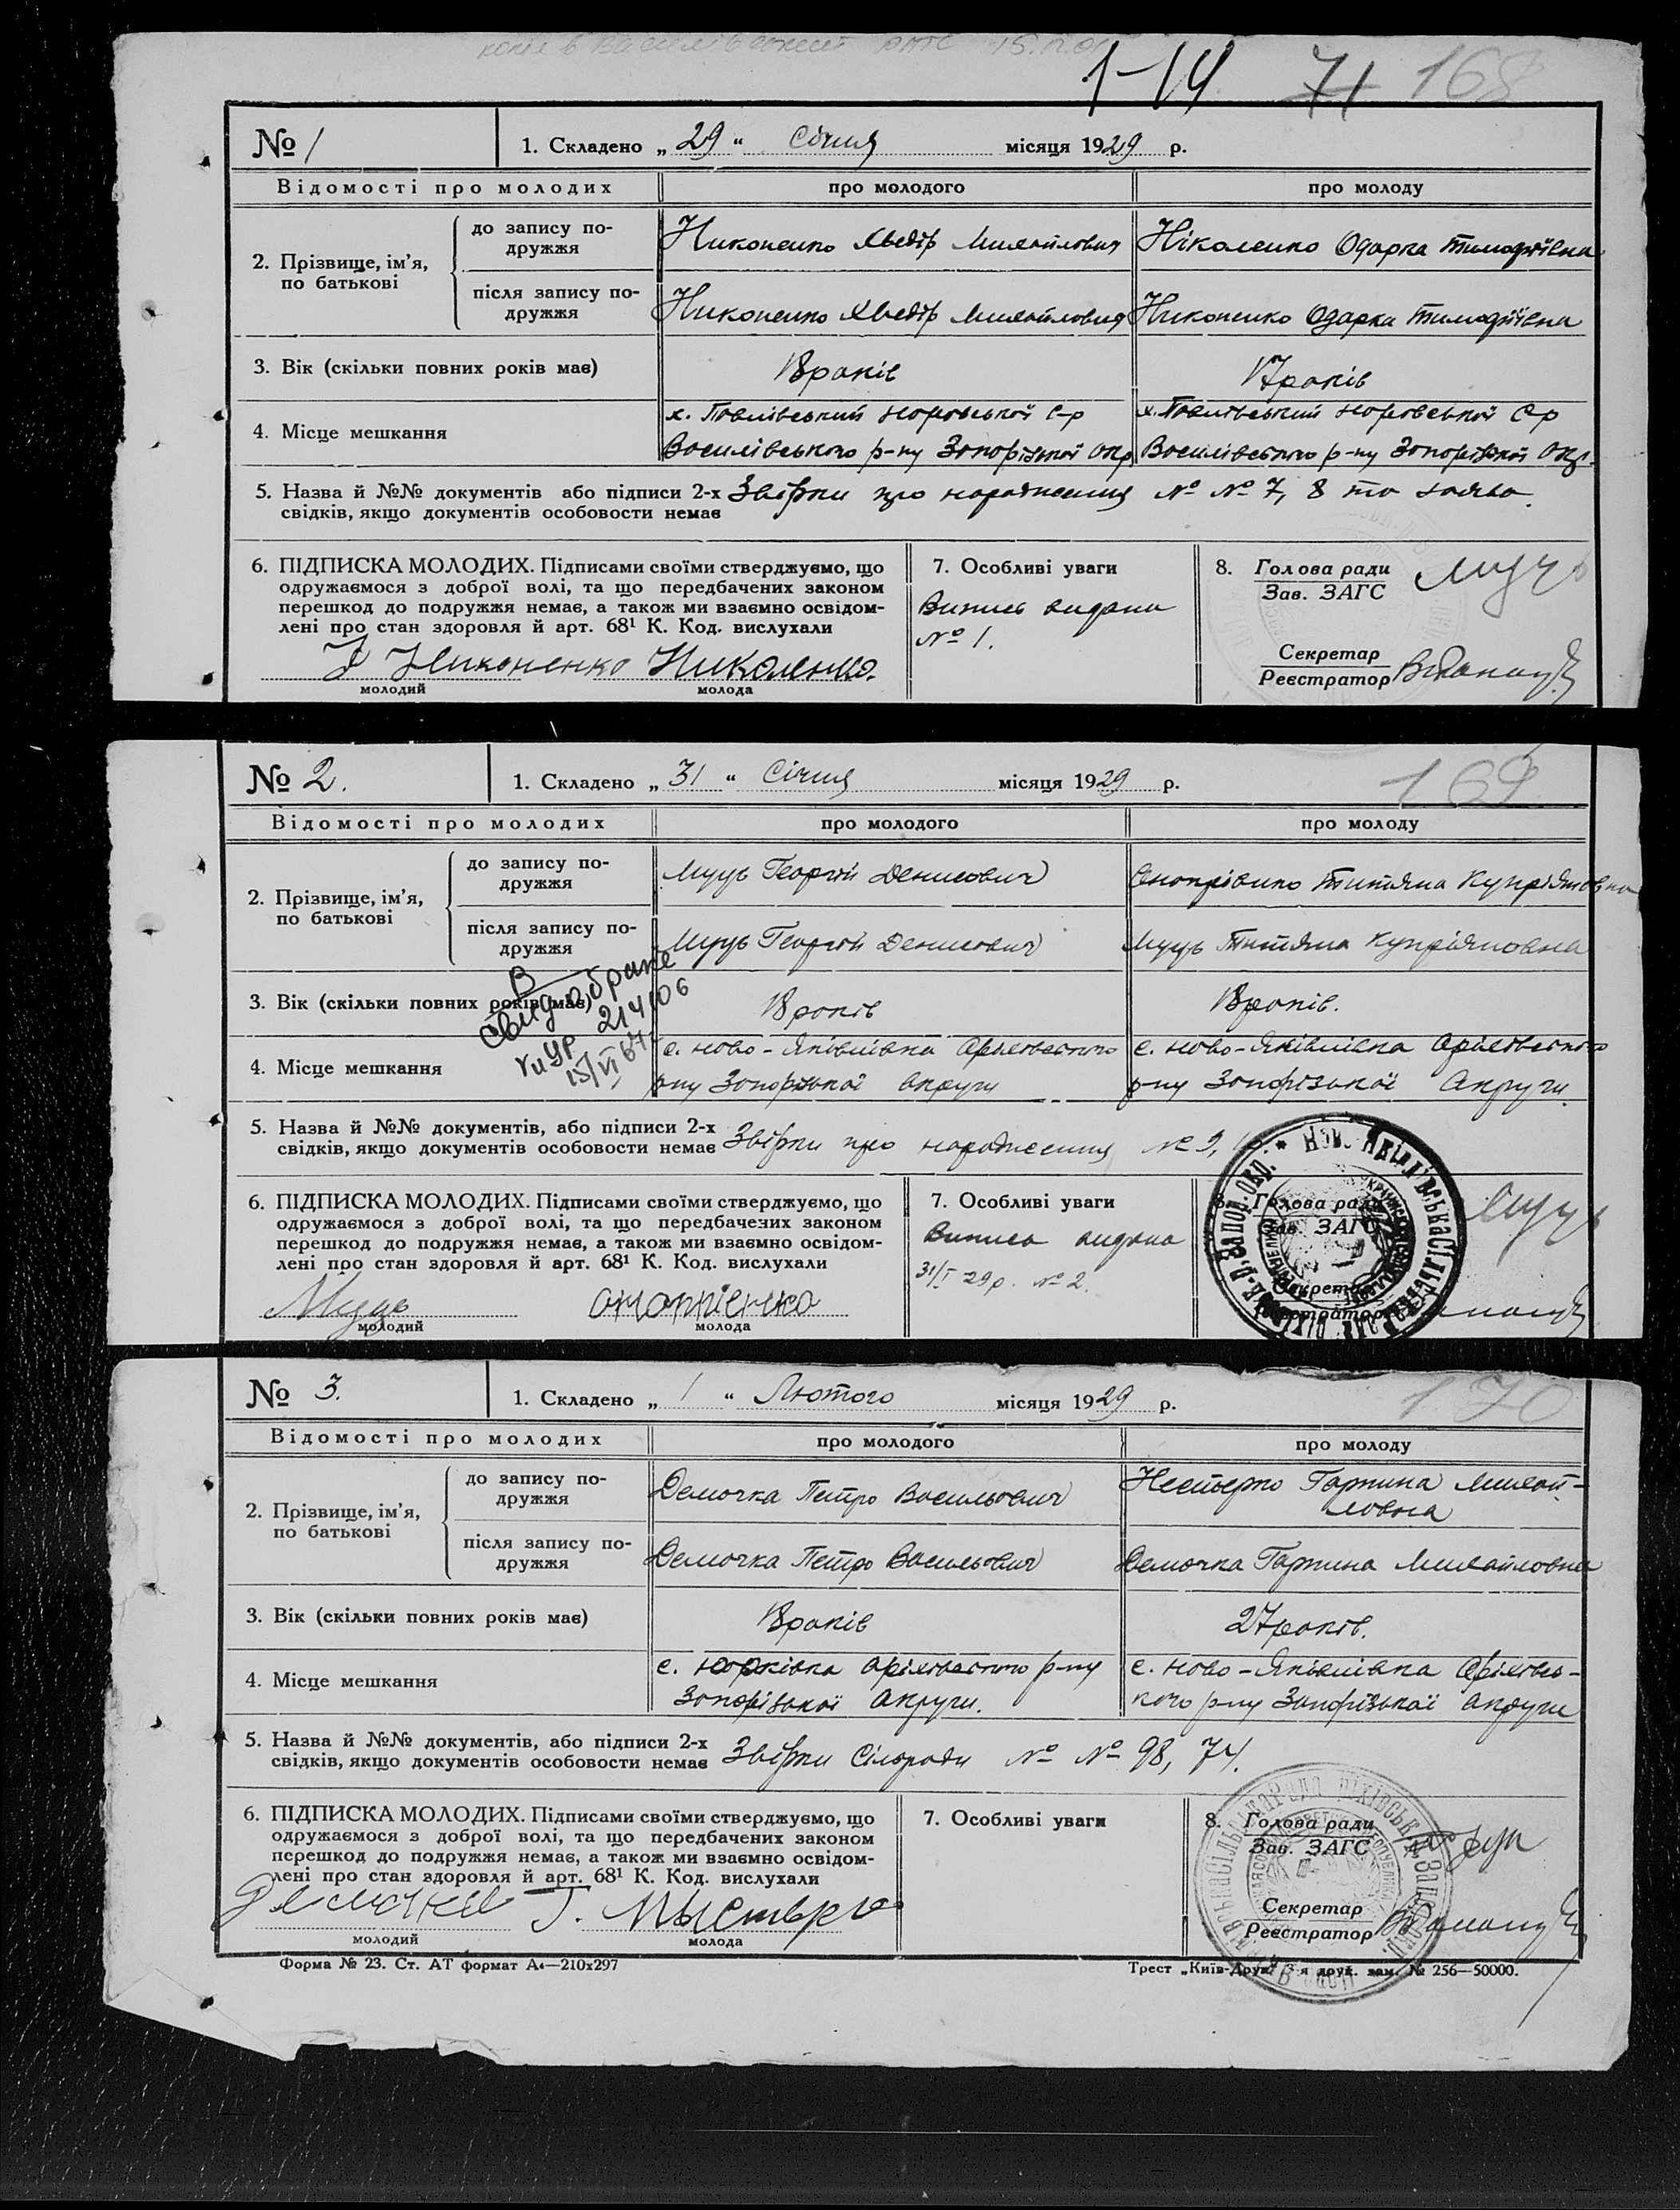 1-14 71 168
№ 1
1. Складено „ 29 “ Січня місяця 1929 р.
Відомості про молодих
про молодого
про молоду
2. Прізвище, ім’я,
по батькові
до запису по-
дружжя
Никоненко Хведір Михайлович
Ніколенко Одарка Тимофіївна
після запису по-
дружжя
Никоненко Хведір Михайлович
Никоненко Одарка Тимофіївна
3. Вік (скільки повних років має)
18 років
17 років
4. Місце мешкання
х. Павлівський с-р
Василівського р-ну Запорізької окр
х. Павлівський с-р
Василівського р-ну Запорізької окр.
5. Назва й №№ документів або підписи 2-х
свідків, якщо документів особовости немає
Звірки про народження № № 7, 8 та заява.
6. ПІДПИСКА МОЛОДИХ. Підписами своїми стверджуємо, що
одружаємося з доброї волі, та що передбачених законом
перешкод до подружжя немає, а також ми взаємно освідом-
лені про стан здоровля й арт. 68¹ К. Код. вислухали
Никоненко Николенко.
молодий
молода
7. Особливі уваги
Випись видана
№ 1.
8. Голова ради
Зав. ЗАГС
Муць
Секретар
Реєстратор
№ 2.
1. Складено „ 31 “ Січня місяця 1929 р.
169
Відомості про молодих
про молодого
про молоду
2. Прізвище, ім’я,
по батькові
до запису по-
дружжя
Муць Георгій Денисович
Онопрієнко Титяна Купріяновна
після запису по-
дружжя
Муць Георгій Денисович
Муць Титяна Купріяновна
3. Вік (скільки повних років має)
18 років
18 років.
214106
4. Місце мешкання
с. Ново-Яківлівка Оріхівського
р-ну Запорізької округи
с. Ново-Яківлівка Оріхівського
р-ну Запорізької Округи.
5. Назва й №№ документів, або підписи 2-х
свідків, якщо документів особовости немає
Звірки про народження № 9,
6. ПІДПИСКА МОЛОДИХ. Підписами своїми стверджуємо, що
одружаємося з доброї волі, та що передбачених законом
перешкод до подружжя немає, а також ми взаємно освідом-
лені про стан здоровля й арт. 68¹ К. Код. вислухали
Муць
молодий
молода
7. Особливі уваги
Випись видана
31/I 29 р. № 2.
8. Голова ради
Зав. ЗАГС
Муць
Секретар
Реєстратор
№ 3.
1. Складено „ 1 “ Лютого місяця 1929 р.
170
Відомості про молодих
про молодого
про молоду
2. Прізвище, ім’я,
по батькові
до запису по-
дружжя
Демочка Петро Васильович
Нестьерко Гарпина Михай-
ловна
після запису по-
дружжя
Демочка Петро Васильович
Демочка Гарпина Михайловна
3. Вік (скільки повних років має)
18 років
27 років.
4. Місце мешкання
с. Юрківка Оріхівського р-ну
Запорізької Округи.
с. Ново-Яківлівка Оріхівсь-
кого р-ну Запорізької округи
5. Назва й №№ документів, або підписи 2-х
свідків, якщо документів особовости немає
Звірки Сільради № № 98, 74.
6. ПІДПИСКА МОЛОДИХ. Підписами своїми стверджуємо, що
одружаємося з доброї волі, та що передбачених законом
перешкод до подружжя немає, а також ми взаємно освідом-
лені про стан здоровля й арт. 68¹ К. Код. вислухали
молодий
молода
7. Особливі уваги
8. Голова ради
Зав. ЗАГС
Секретар
Реєстратор
Форма № 23. Ст. АТ формат А₄—210x297
Трест „Київ-Друк“ 3-я друк. зам. № 256—50000.